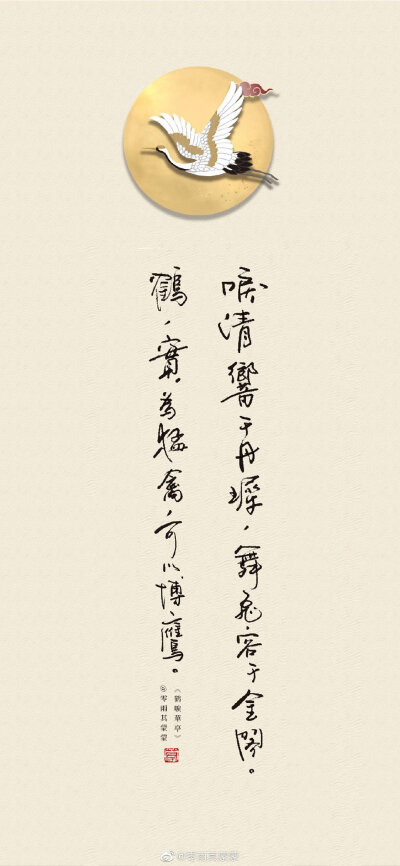 唳清響于丹墀，舞飛容于金閣。
鶴，實為猛禽，可以搏鷹。
《鶴唳華亭》
@零雨其蒙蒙
@零雨其蒙蒙